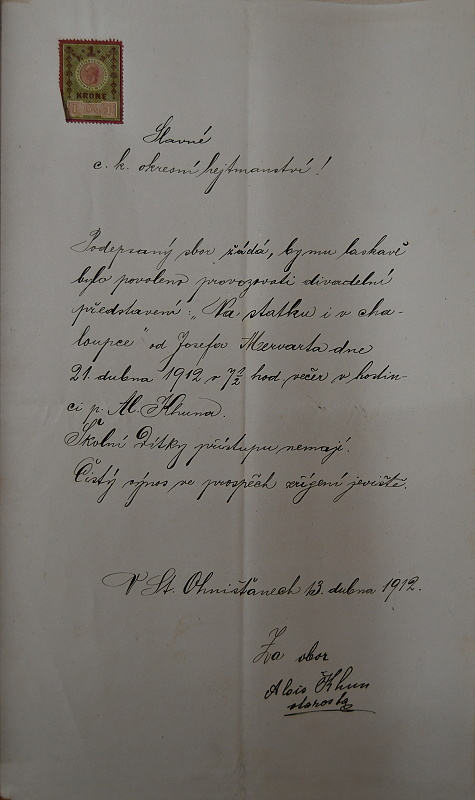 1
KRONE
Slavné
c. k. okresní hejtmanství!
Podepsaný sbor žádá, by mu laskavě
bylo povoleno provozovati divadelní
představení: „Na statku i v cha-
loupce" od Josefa Merwarta dne
21. dubna 1912 v 7½ hod. večer v hostin-
ci p. Al. Khuna.
Školní dítky přístupu nemají.
Čistý výnos ve prospěch zřízení jeviště.
V St. Ohništanech 13. dubna 1912.
Za sbor
Alois Khun
starosta